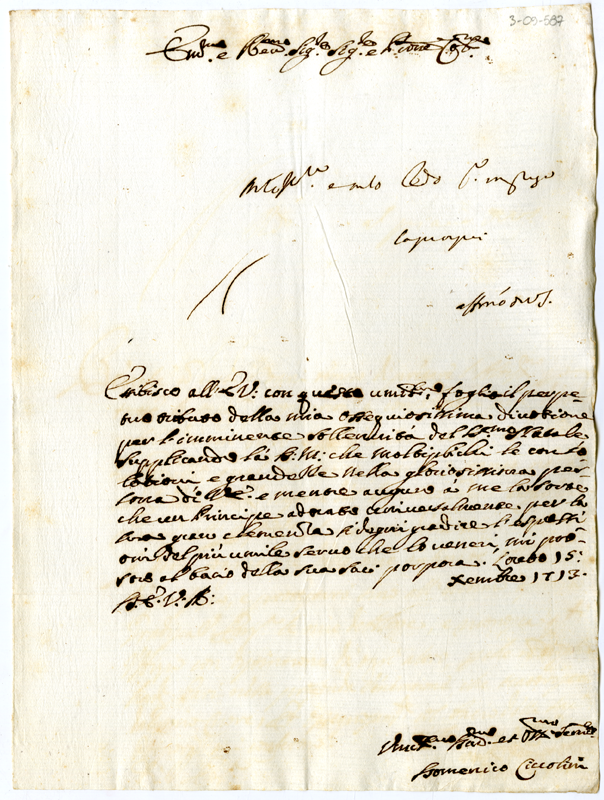 3-09-587
Em.mo e Rev.mo Sig.r Sig.r e P.rone
e m.to
Esibisco all'E.V. con questo umiliss.mo foglio il perpe-
tuo tributo della mia ossequiosissima divotione
per l'imminente sollennità del SS.mo Natale
supplicando la D.M. che moltiplichi le conso
lationi e grandezze nella gloriosissima per
sona di V.E. e mentre auguro à me la sorte
che un Principe adorato universalmente per la
sua gran clemenza si degni gradire l'espressi
oni del più umile servo che lo veneri, mi pro-
stro al bacio della sua sac. porpora. Loreto 15:
Xembre 1713.
D.E.V.R:
Um.mo Dev.mo et Obb.mo Servit.re
Domenico Ciccolini